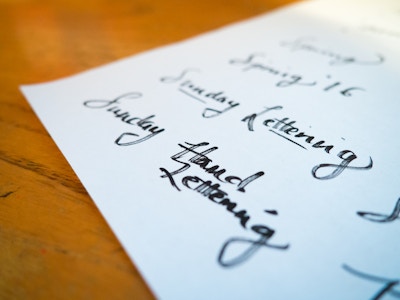 Spring '16
Sunday Lettering
Sunday Hand
Lettering